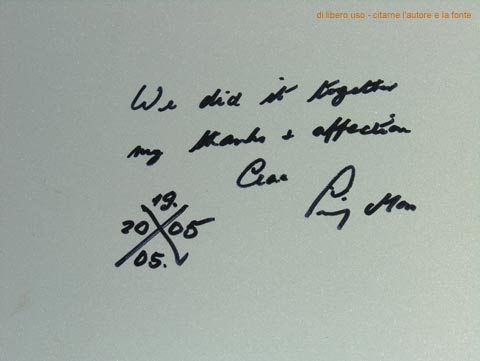 di libero uso - citarne l'autore e la fonte
We did it together
my thanks + affection
Ciao
19.
20 05
05.